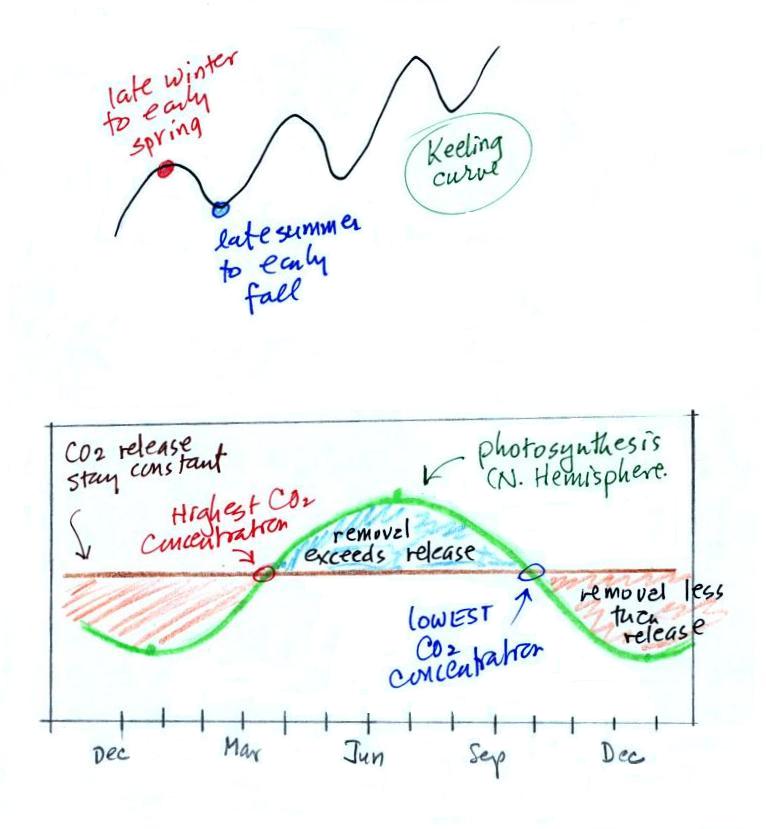 late winter
to early
spring
Keeling
curve
late summer
to early
fall
CO2 release
stay constant
Highest CO2
Concentration
photosynthesis
(N. Hemisphere.
removal
exceeds release
removel less
than
release
LOWEST
CO2
concentration
Dec Mar Jun Sep Dec